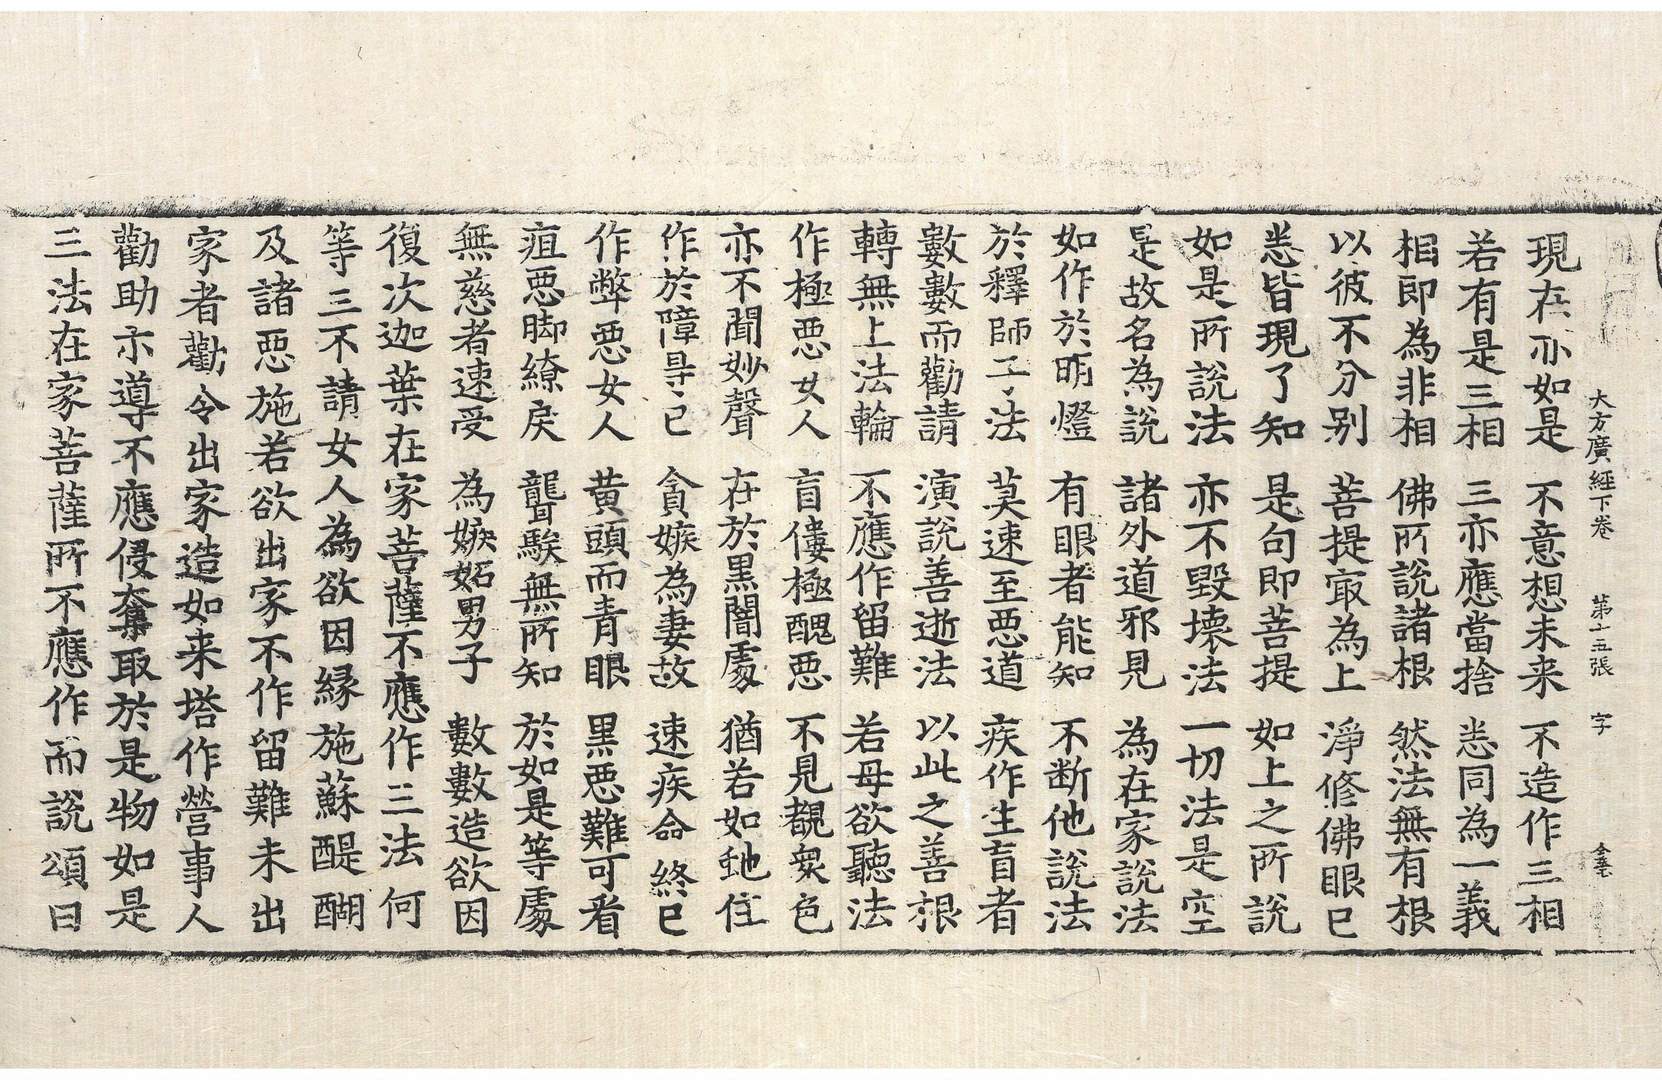 大方廣經下卷 第十五張 字
現在亦如是 不意想未来 不造作三相
若有是三相 三亦應當捨 悉同為一義
相即為非相 佛所說諸根 然法無有根
以彼不分别 菩提㝡為上 淨修佛眼已
悉皆現了知 是句即菩提 如上之所說
如是所說法 亦不毀壞法 一切法是空
是故名為說 諸外道邪見 為在家說法
如作於明燈 有眼者能知 不断他說法
於釋師子法 莫速至惡道 疾作生盲者
數數而勸請 演說善逝法 以此之善根
轉無上法輪 不應作留難 若母欲聽法
作極惡女人 盲僂極醜惡 不見覩衆色
亦不聞妙聲 在於黒闇處 猶若如虵住
作於障㝵已 貪嫉為妻故 速疾命終已
作弊惡女人 黄頭而青眼 黒惡難可看
疽惡脚繚戾 聾騃無所知 於如是等處
無慈者速受 為嫉妬男子 數數造欲因
復次迦葉在家菩薩不應作三法何
等三不請女人為欲因縁施蘇醍醐
及諸惡施若欲出家不作留難未出
家者勸令出家造如来塔作營事人
勸助示導不應侵奪取於是物如是
三法在家菩薩所不應作而說頌曰